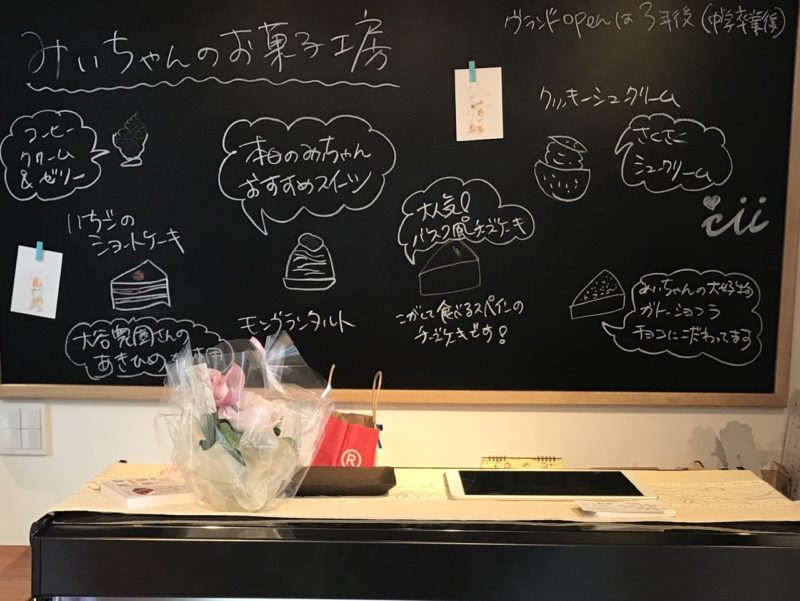 みぃちゃんのお菓子工房
グランドopenは3年後(中学卒業後)
クッキーシュークリーム
コーヒー
クリーム
&ゼリー
本日のみぃちゃん
おすすめスイーツ
さくさく
シュークリーム
大人気!
バスク風チーズケーキ
cii
いちごの
ショートケーキ
モンブランタルト
こがして食べるスペインの
チーズケーキです!
みぃちゃんの大好物
ガトーショコラ
チョコにこだわってます
大谷農園さんの
あきひめ
R